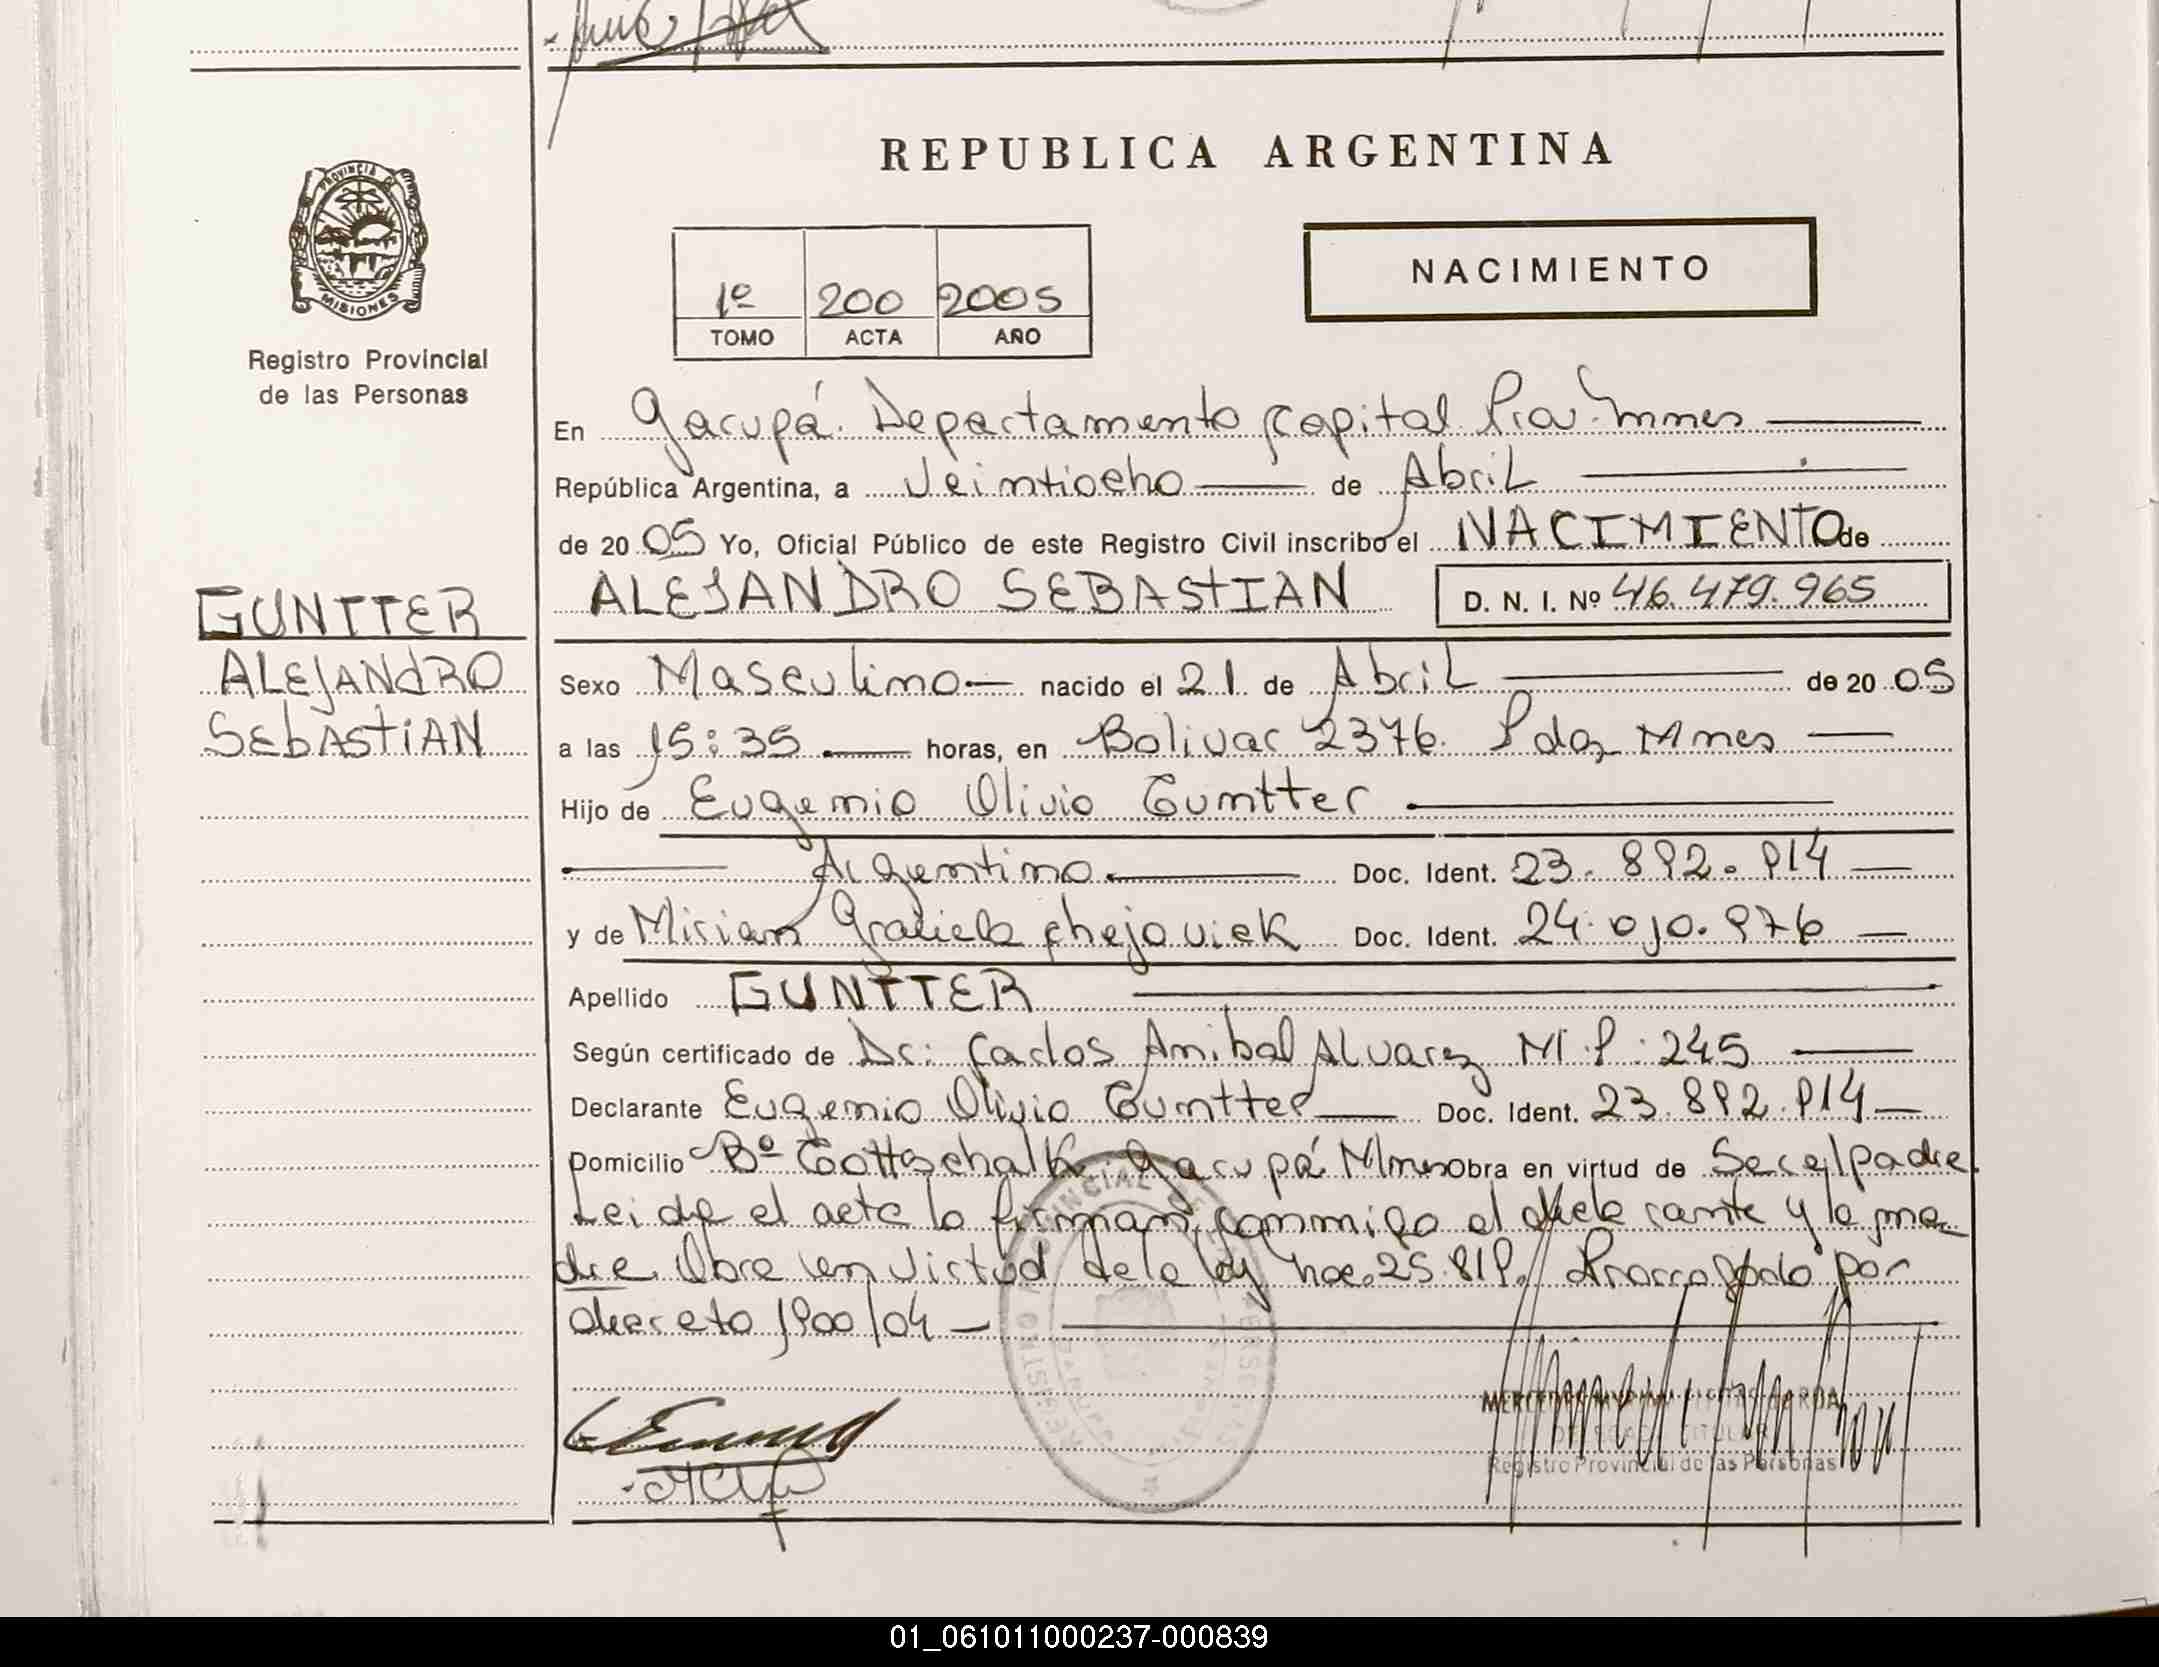 REPUBLICA ARGENTINA
PROVINCIA DE
MISIONES
Registro Provincial
de las Personas
1º 200 2005
TOMO ACTA AÑO
NACIMIENTO
GUNTTER
ALEJANDRO
SEBASTIAN
En Garupá Departamento Capital Prov. Mnes
República Argentina, a Veintiocho de Abril
de 20 05 Yo, Oficial Público de este Registro Civil inscribo el NACIMIENTO de
ALEJANDRO SEBASTIAN D. N. I. Nº 46.479.965
Sexo Masculino nacido el 21 de Abril de 20 05
a las 15:35 horas, en Bolivar 2376. Pdas Mnes
Hijo de Eugenio Olivio Guntter
Argentino Doc. Ident. 23.892.914
y de Miriam Graciela Chejoviek Doc. Ident. 24.010.976
Apellido GUNTTER
Según certificado de Dr: Carlos Anibal Alvarez M.P: 245
Declarante Eugenio Olivio Guntter Doc. Ident. 23.892.914
Domicilio Bº Gottschalk Garupá Mnes Obra en virtud de ser el padre
Leida el acta la firman conmigo el declarante y la ma
dre. Obra en virtud de la ley nac. 25.819. Prorrogado por
decreto 1900/04
DELEGADA TITULAR
Registro Provincial de las Personas
01_061011000237-000839